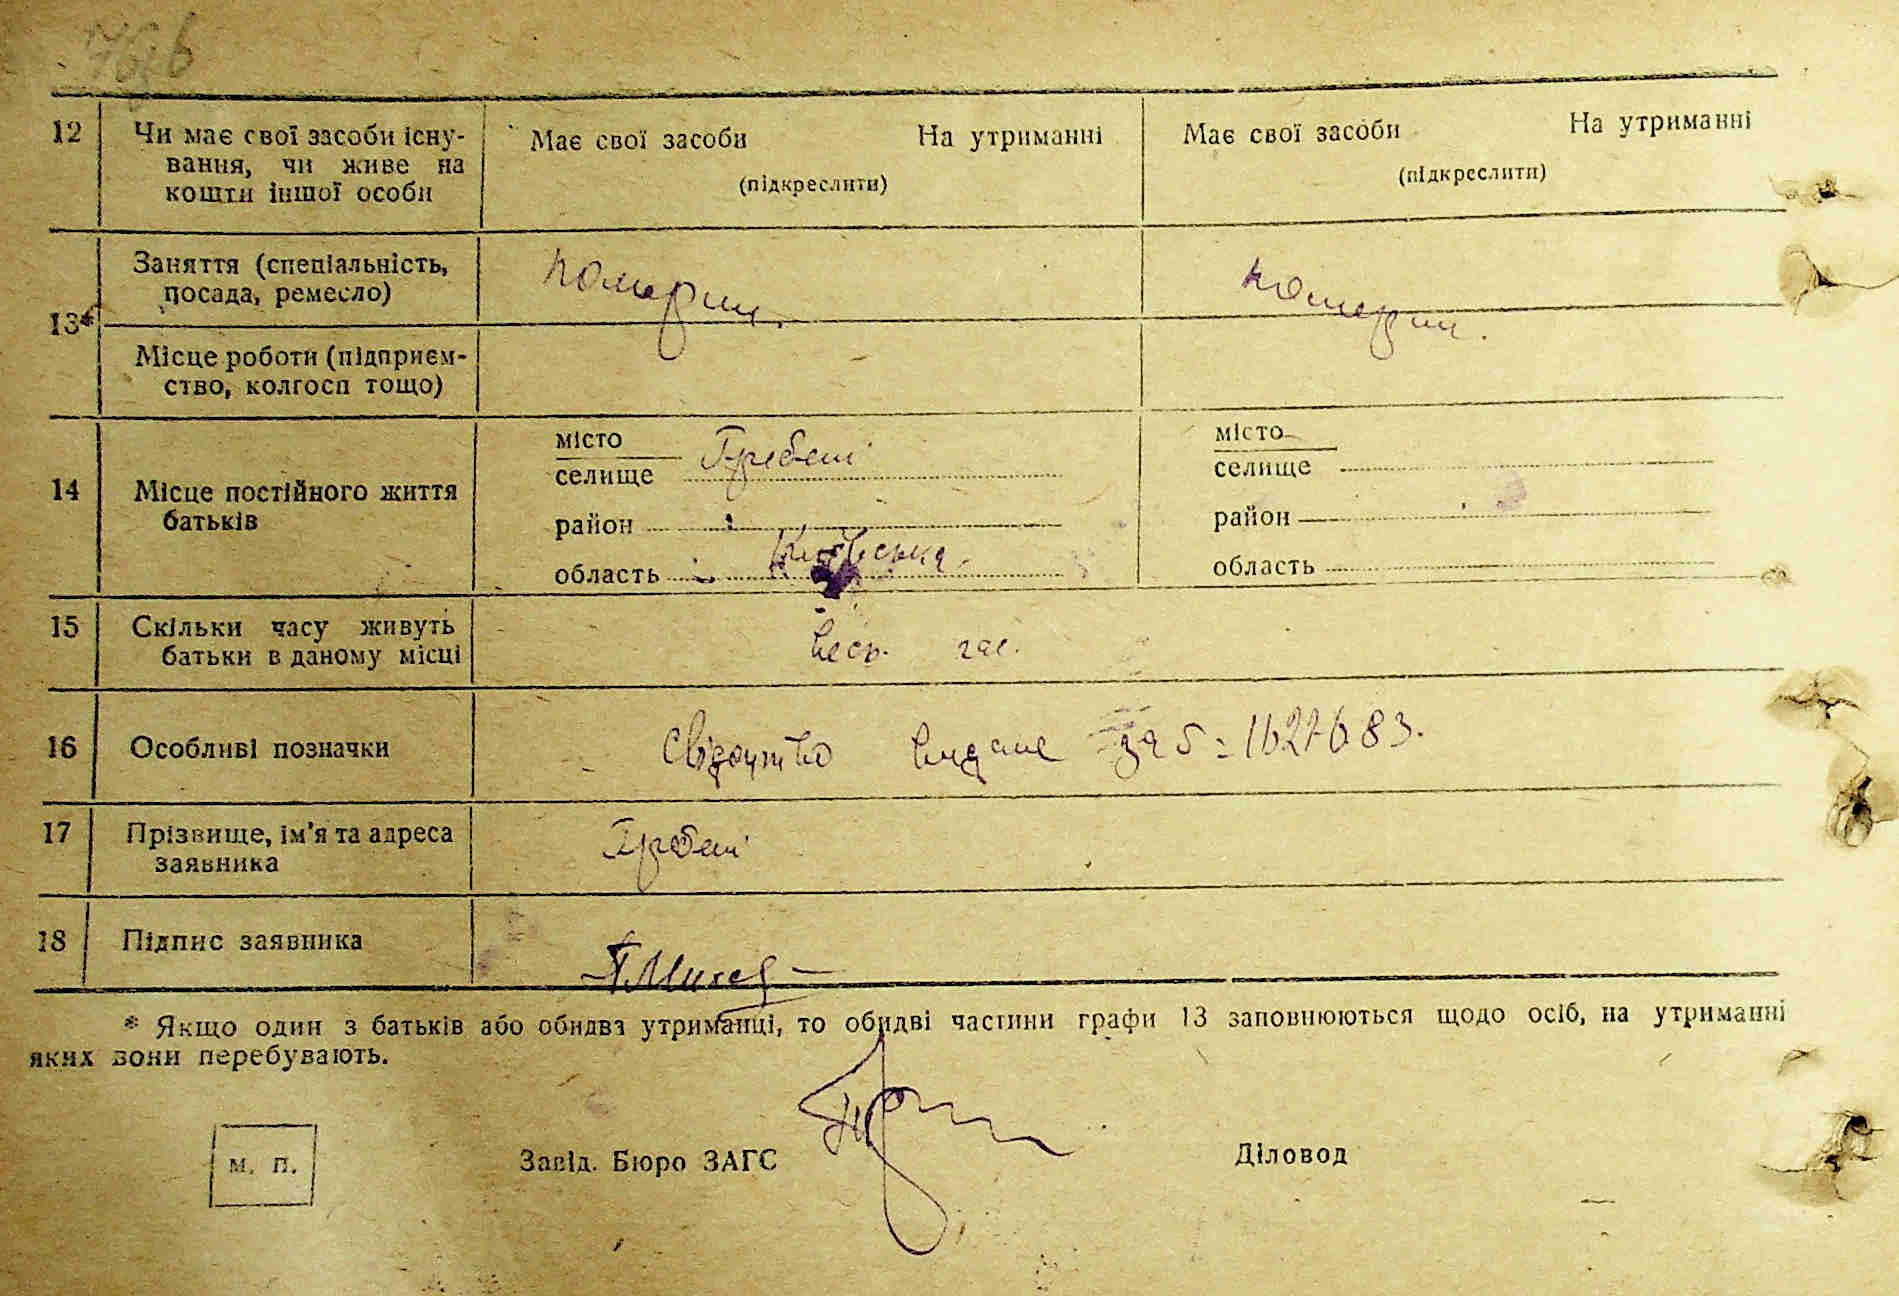 12 Чи має свої засоби існу-
вання, чи живе на
кошти іншої особи
Має свої засоби На утриманні
(підкреслити)
Має свої засоби На утриманні
(підкреслити)
13* Заняття (спеціальність,
посада, ремесло)
Місце роботи (підприєм-
ство, колгосп тощо)
14 Місце постійного життя
батьків
місто
селище Гребені
район
область Київська
місто
селище
район
область
15 Скільки часу живуть
батьки в даному місці
весь час.
16 Особливі позначки
Свідоцтво видане за
17 Прізвище, ім'я та адреса
заявника
Гребені
18 Підпис заявника
* Якщо один з батьків або обидва утриманці, то обидві частини графи 13 заповнюються щодо осіб, на утриманні
яких вони перебувають.
М. П.
Завід. Бюро ЗАГС
Діловод